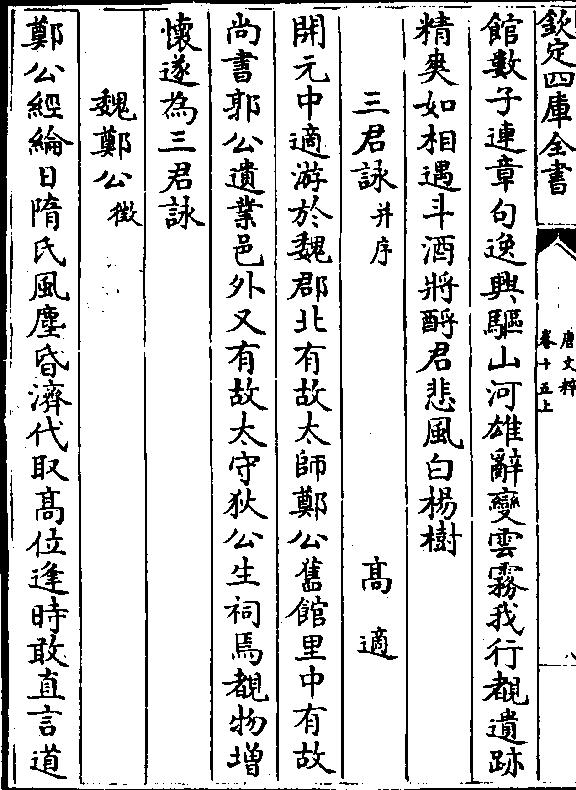 欽定四庫全書
唐文粹
卷十五上
八
館數子連章句逸興驅山河雄辭變雲霧我行覩遺跡
精爽如相遇斗酒將酹君悲風白楊樹
三君詠并序　高適
開元中適游於魏郡北有故太師鄭公舊館里中有故
尚書郭公遺業邑外又有故太守狄公生祠焉覩物增
懷遂為三君詠
魏鄭公徵
鄭公經綸日隋氏風塵昏濟代取高位逢時敢直言道